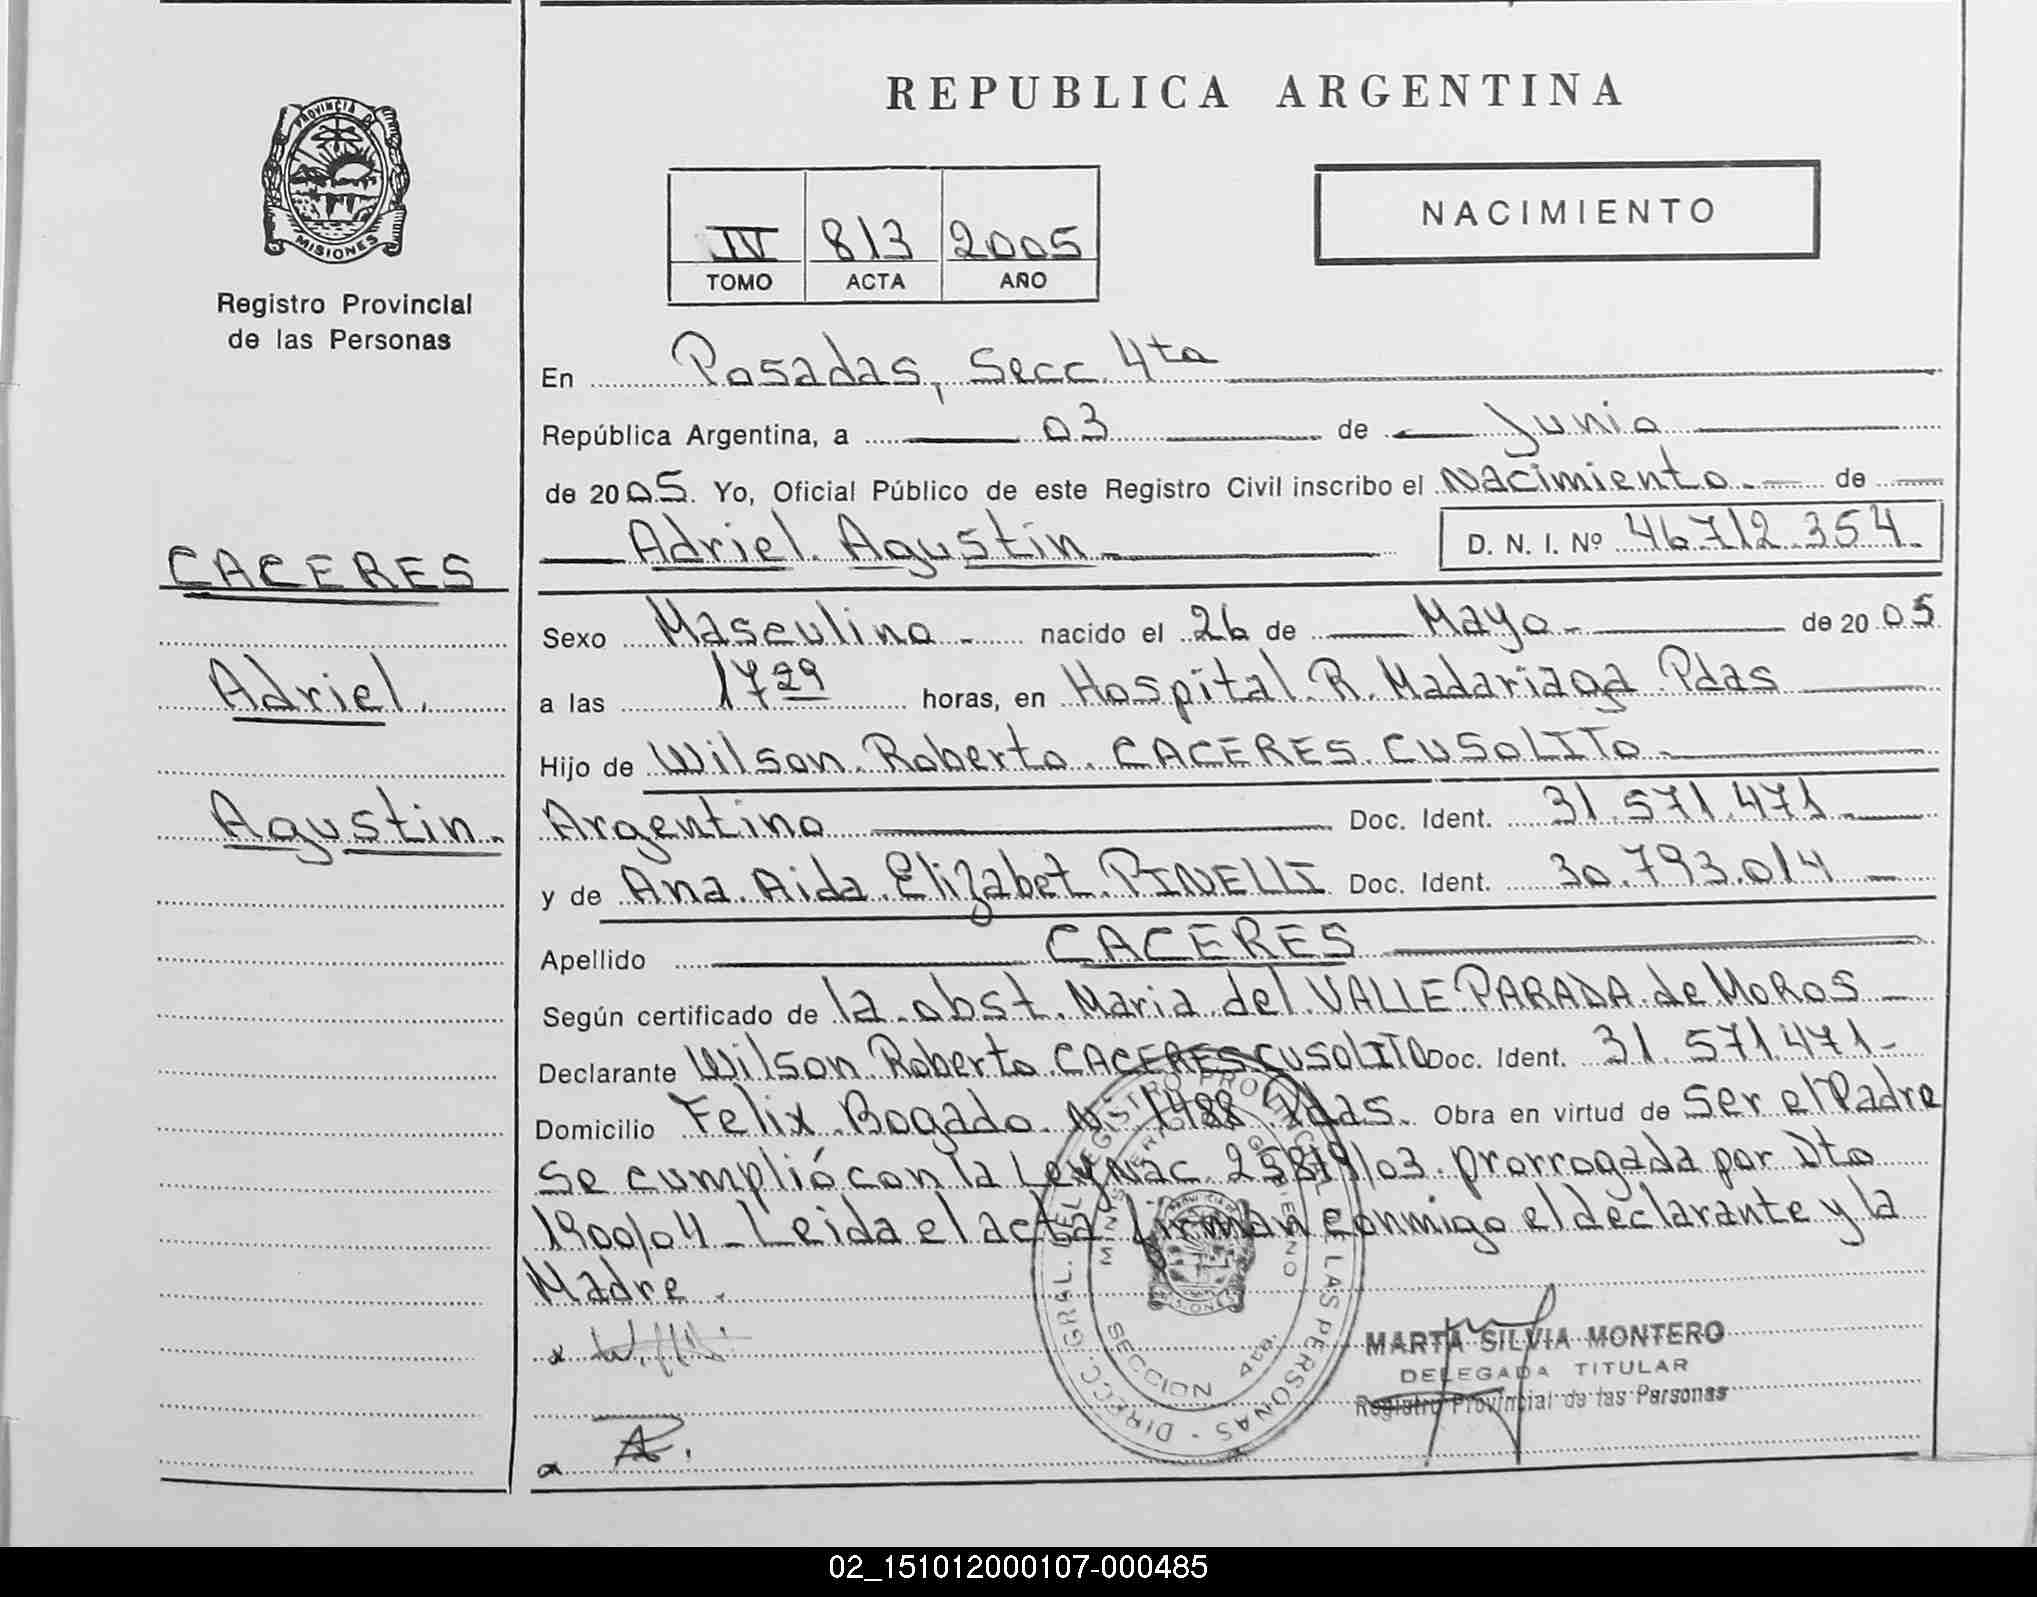 REPUBLICA ARGENTINA
PROVINCIA DE
MISIONES
Registro Provincial
de las Personas
IV 813 2005
TOMO ACTA AÑO
NACIMIENTO
CACERES
Adriel
Agustin
En Posadas, Secc 4ta
República Argentina, a 03 de Junio
de 2005. Yo, Oficial Público de este Registro Civil inscribo el Nacimiento de
Adriel Agustin D. N. I. Nº 46.712.354
Sexo Masculino nacido el 26 de Mayo de 2005
a las 1729 horas, en Hospital R. Madariaga Pdas
Hijo de Wilson Roberto CACERES CUSOLITO
Argentino Doc. Ident. 31.571.471
y de Ana Aida Elizabet PINELLI Doc. Ident. 30.793.014
Apellido CACERES
Según certificado de la obst. Maria del VALLE PARADA de MOROS
Declarante Wilson Roberto CACERES CUSOLITO Doc. Ident. 31.571.471
Domicilio Felix Bogado Nº 1488 Pdas. Obra en virtud de Ser el Padre
Se cumplió con la Ley Nac 25819/03 prorrogada por Dto
1900/04 - Leida el acta firman conmigo el declarante y la
Madre.
DIRECC. GRAL. DEL REGISTRO PROVINCIAL DE LAS PERSONAS
SECCION 4ta.
MARTA SILVIA MONTERO
DELEGADA TITULAR
Registro Provincial de las Personas
02_151012000107-000485